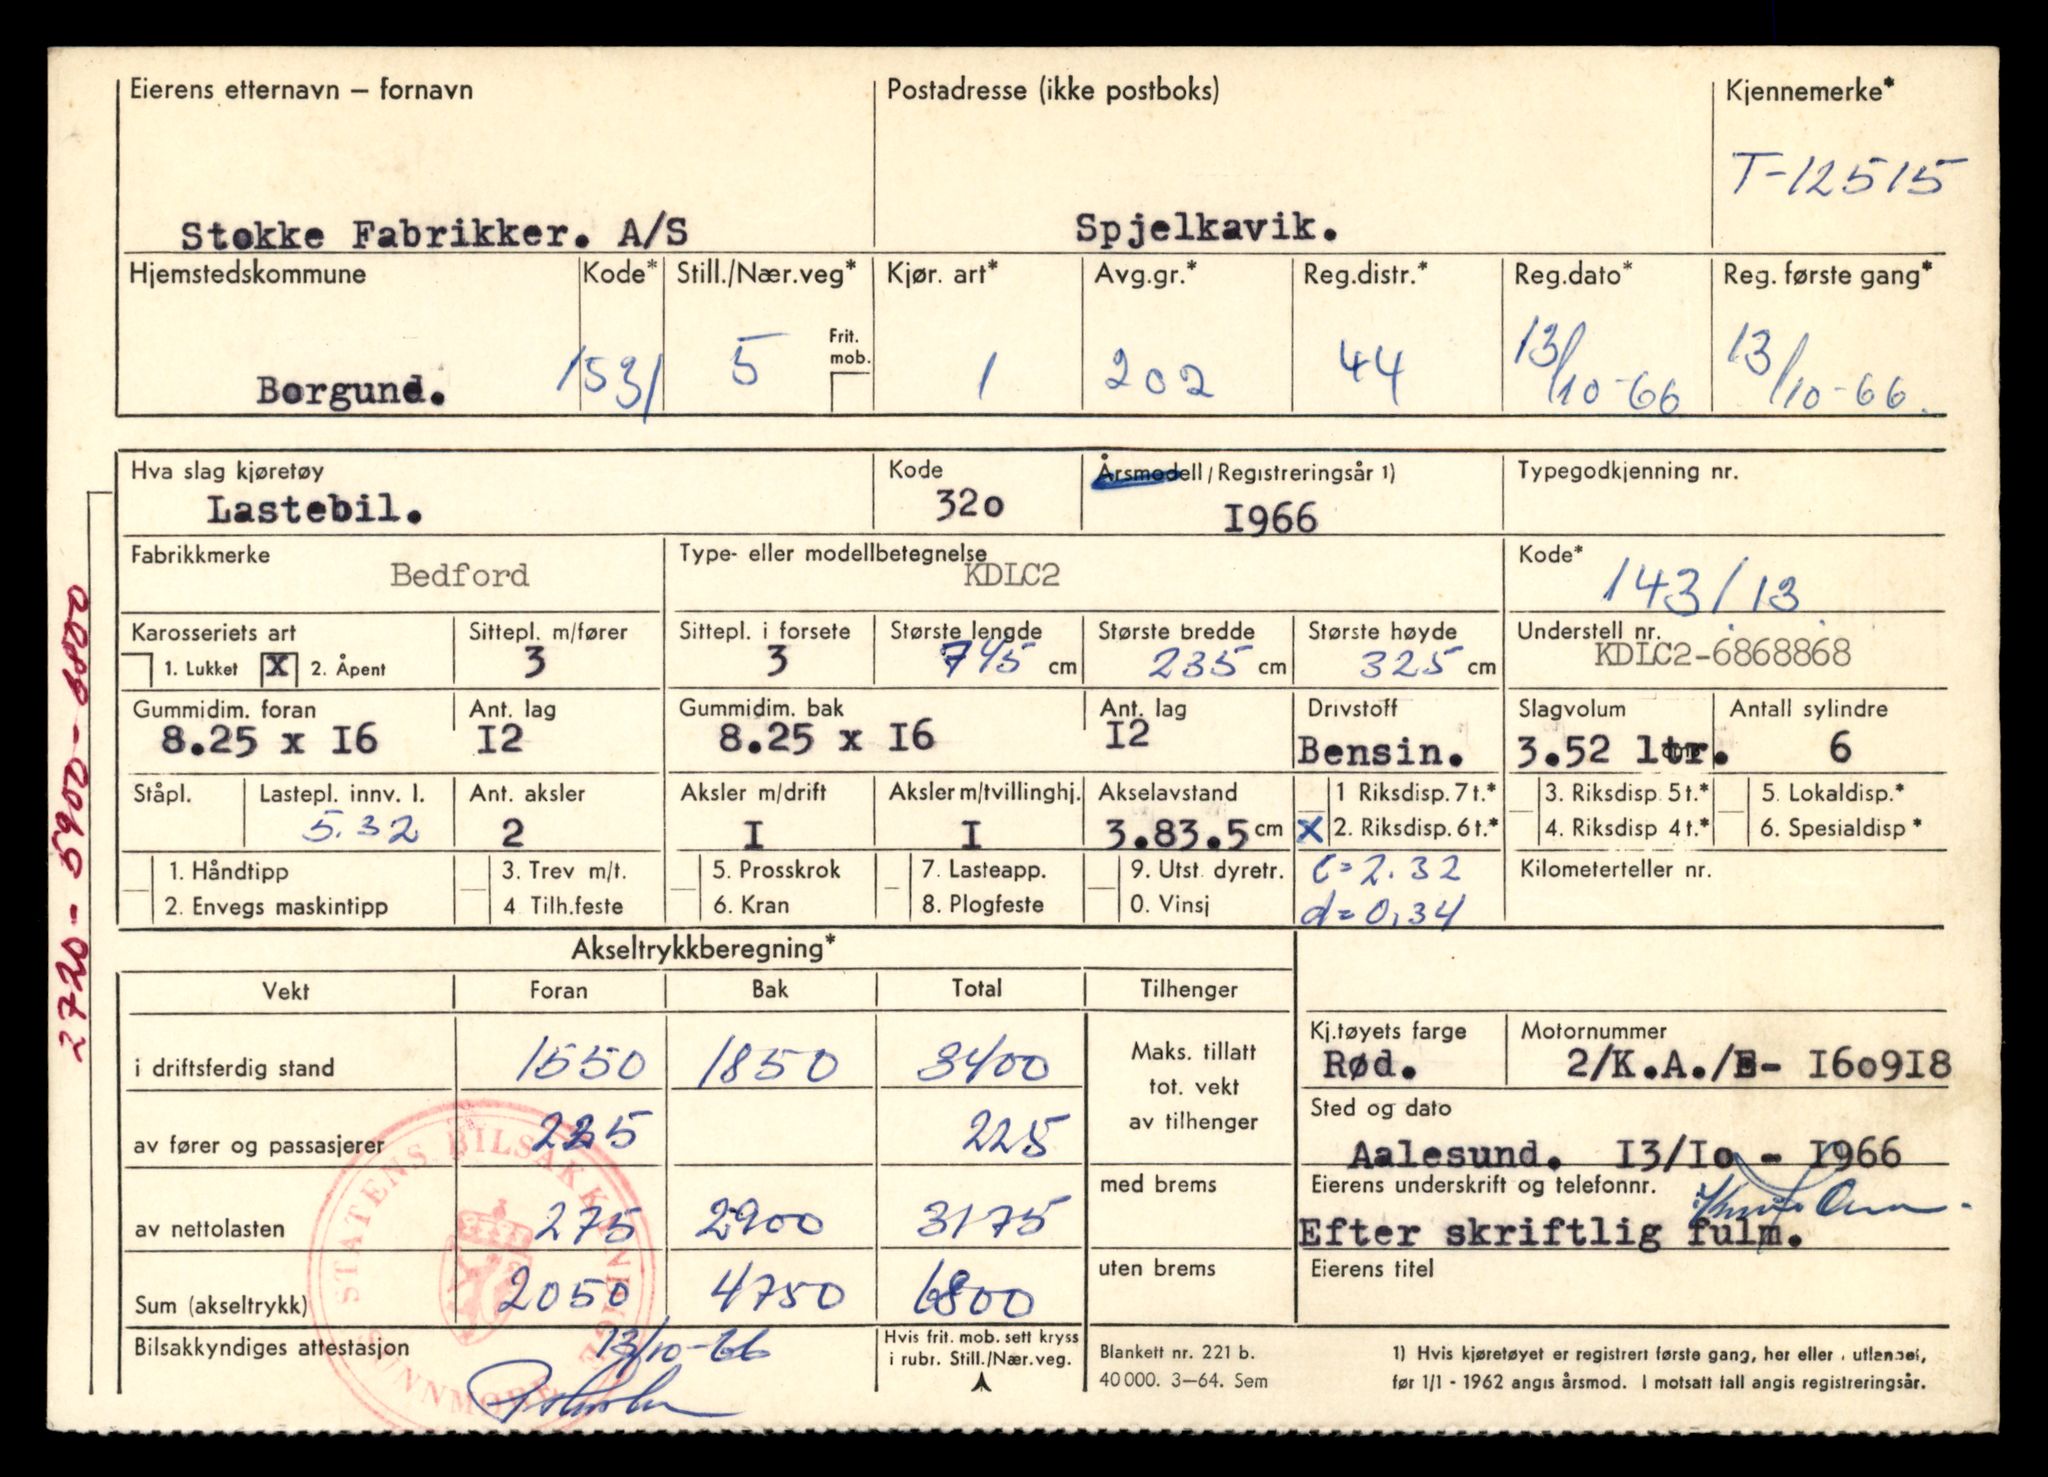 Eierens etternavn – fornavn
Postadresse (ikke postboks)
Kjennemerke*
T-12515
Stokke Fabrikker. A/S
Spjelkavik.
Hjemstedskommune Kode* Still./Nær.veg* Kjør. art* Avg.gr.* Reg.distr.* Reg.dato* Reg. første gang*
Frit. mob.
Borgund. 1531 5 1 202 44 13/10-66 13/10-66.
Hva slag kjøretøy Kode Årsmodell/Registreringsår 1) Typegodkjenning nr.
Lastebil. 32o I966
Fabrikkmerke Type- eller modellbetegnelse Kode*
Bedford KDLC2 143/13
Karosseriets art Sittepl. m/fører Sittepl. i forsete Største lengde Største bredde Største høyde Understell nr.
1. Lukket X 2. Åpent 3 3 745 cm 235 cm 325 cm KDLC2-6868868
Gummidim. foran Ant. lag Gummidim. bak Ant. lag Drivstoff Slagvolum Antall sylindre
8.25 x I6 I2 8.25 x I6 I2 Bensin. 3.52 ltr. 6
Ståpl. Lastepl. innv. l. Ant. aksler Aksler m/drift Aksler m/tvillinghj. Akselavstand 1 Riksdisp. 7 t.* 3. Riksdisp. 5 t.* 5. Lokaldisp.*
5.32 2 I I 3.83.5 cm X 2. Riksdisp. 6 t.* 4. Riksdisp 4 t.* 6. Spesialdisp*
1. Håndtipp 3. Trev m/t. 5. Prosskrok 7. Lasteapp. 9. Utst. dyretr. c=2.32 Kilometerteller nr.
2. Envegs maskintipp 4 Tilh.feste 6. Kran 8. Plogfeste 0. Vinsj d=0,34
2720 - 5900 - 6800
Akseltrykkberegning*
Vekt Foran Bak Total Tilhenger
i driftsferdig stand 1550 1850 3400
Maks. tillatt
tot. vekt
av tilhenger
av fører og passasjerer 225 225
av nettolasten 275 2900 3175
med brems
Sum (akseltrykk) 2050 4750 6800
uten brems
Kj.tøyets farge Motornummer
Rød. 2/K.A./E- I6o9I8
Sted og dato
Aalesund. I3/Io - I966
Eierens underskrift og telefonnr.
Efter skriftlig fulm.
Eierens titel
STATENS BILSAKKYNDIGE
SUNNMØRE
Bilsakkyndiges attestasjon
13/10-66
Hvis frit. mob. sett kryss
i rubr. Still./Nær.veg.
Blankett nr. 221 b.
40 000. 3–64. Sem
1) Hvis kjøretøyet er registrert første gang, her eller i utlandet,
før 1/1 - 1962 angis årsmod. I motsatt fall angis registreringsår.